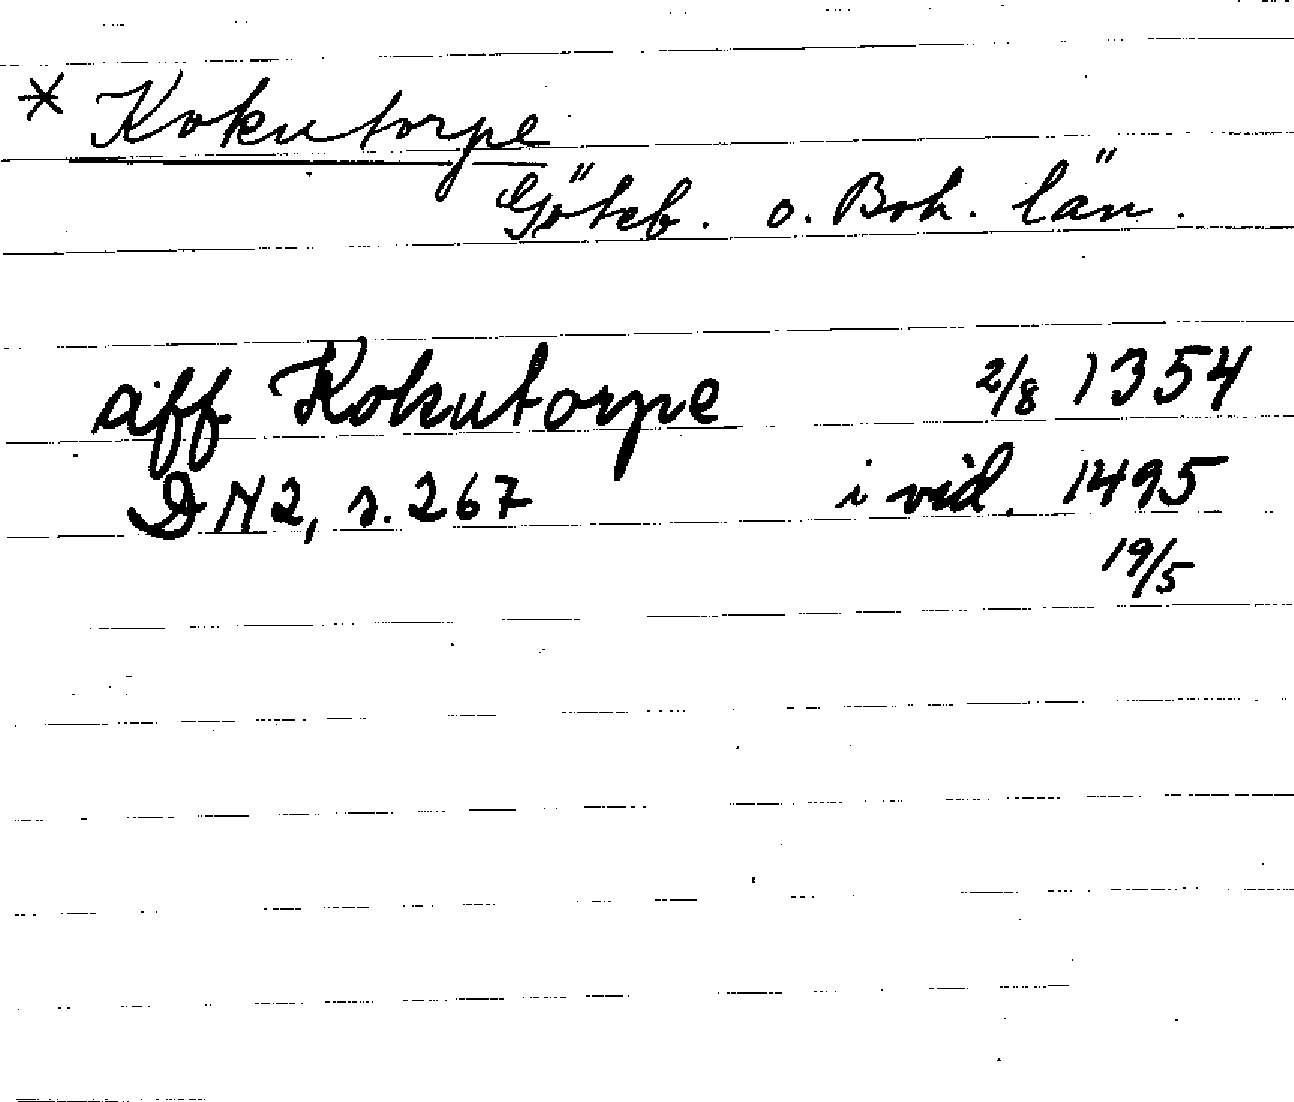 * Kokutorpe
Göteb. o. Boh. län.
aff Kokutorpe 2/8 1354
DN2, s. 267 i vid. 1495
19/5